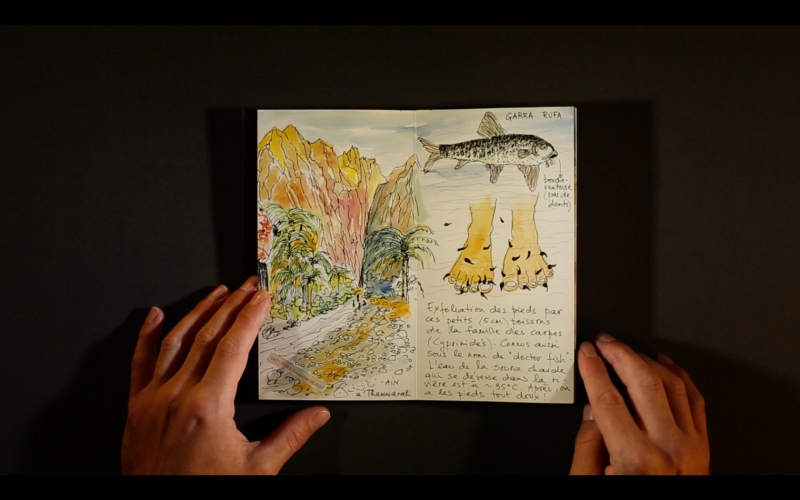 GARRA RUFA
bouche-
ventouse
(pas de
dents)
Exfoliation des pieds par
ces petits (5cm) poissons
de la famille des carpes
(Cyprinidés). Connus aussi
sous le nom de "doctor fish"
L'eau de la source chaude
qui se déverse dans la ri-
vière est à ~35°C. Après, on
a les pieds tout doux !
AïN
a Thawwarah